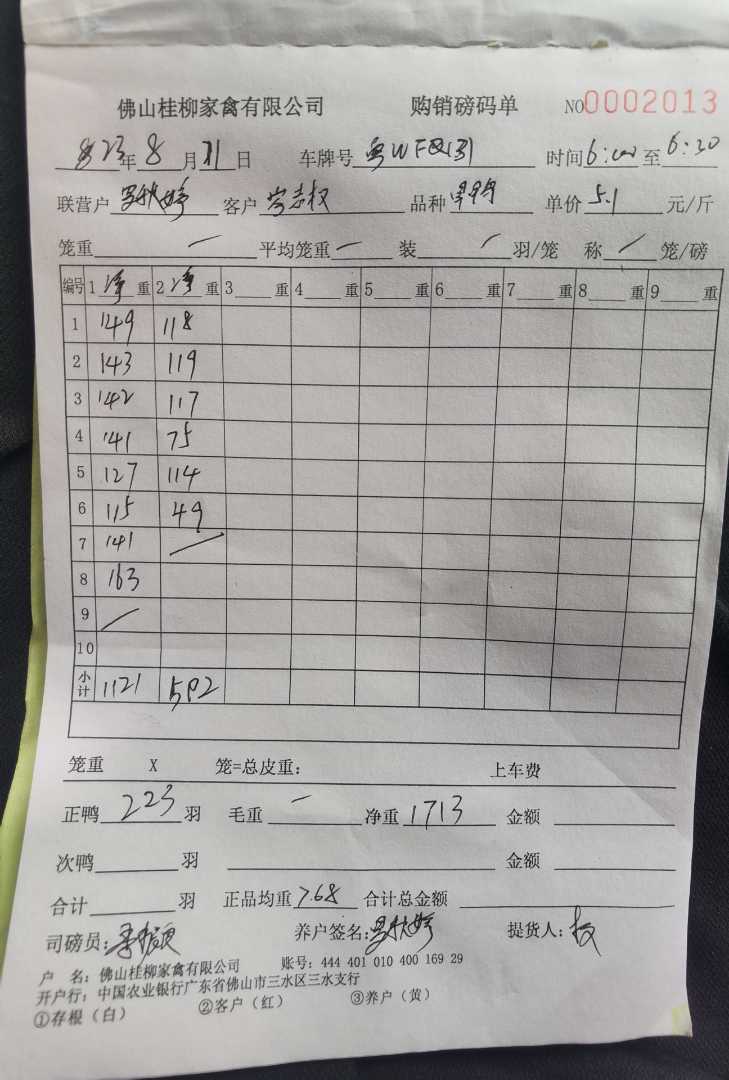 佛山桂柳家禽有限公司 购销磅码单 NO0002013
23年8月21日 车牌号 粤W 时间6:00至6:30
联营户 客户 品种 单价5.1元/斤
笼重 一 平均笼重 一 装 / 羽/笼 称 / 笼/磅
编号 1净重 2净重 3 重 4 重 5 重 6 重 7 重 8 重 9 重
1 149 118
2 143 119
3 142 117
4 141 75
5 127 114
6 115 49
7 141 /
8 163
9 /
10
小计 1121 592
笼重 X 笼=总皮重: 上车费
正鸭 223 羽 毛重 一 净重 1713 金额
次鸭 羽 金额
合计 羽 正品均重 7.68 合计总金额
司磅员: 养户签名: 提货人:
户 名: 佛山桂柳家禽有限公司 账号: 444 401 010 400 169 29
开户行: 中国农业银行广东省佛山市三水区三水支行
①存根（白） ②客户（红） ③养户（黄）